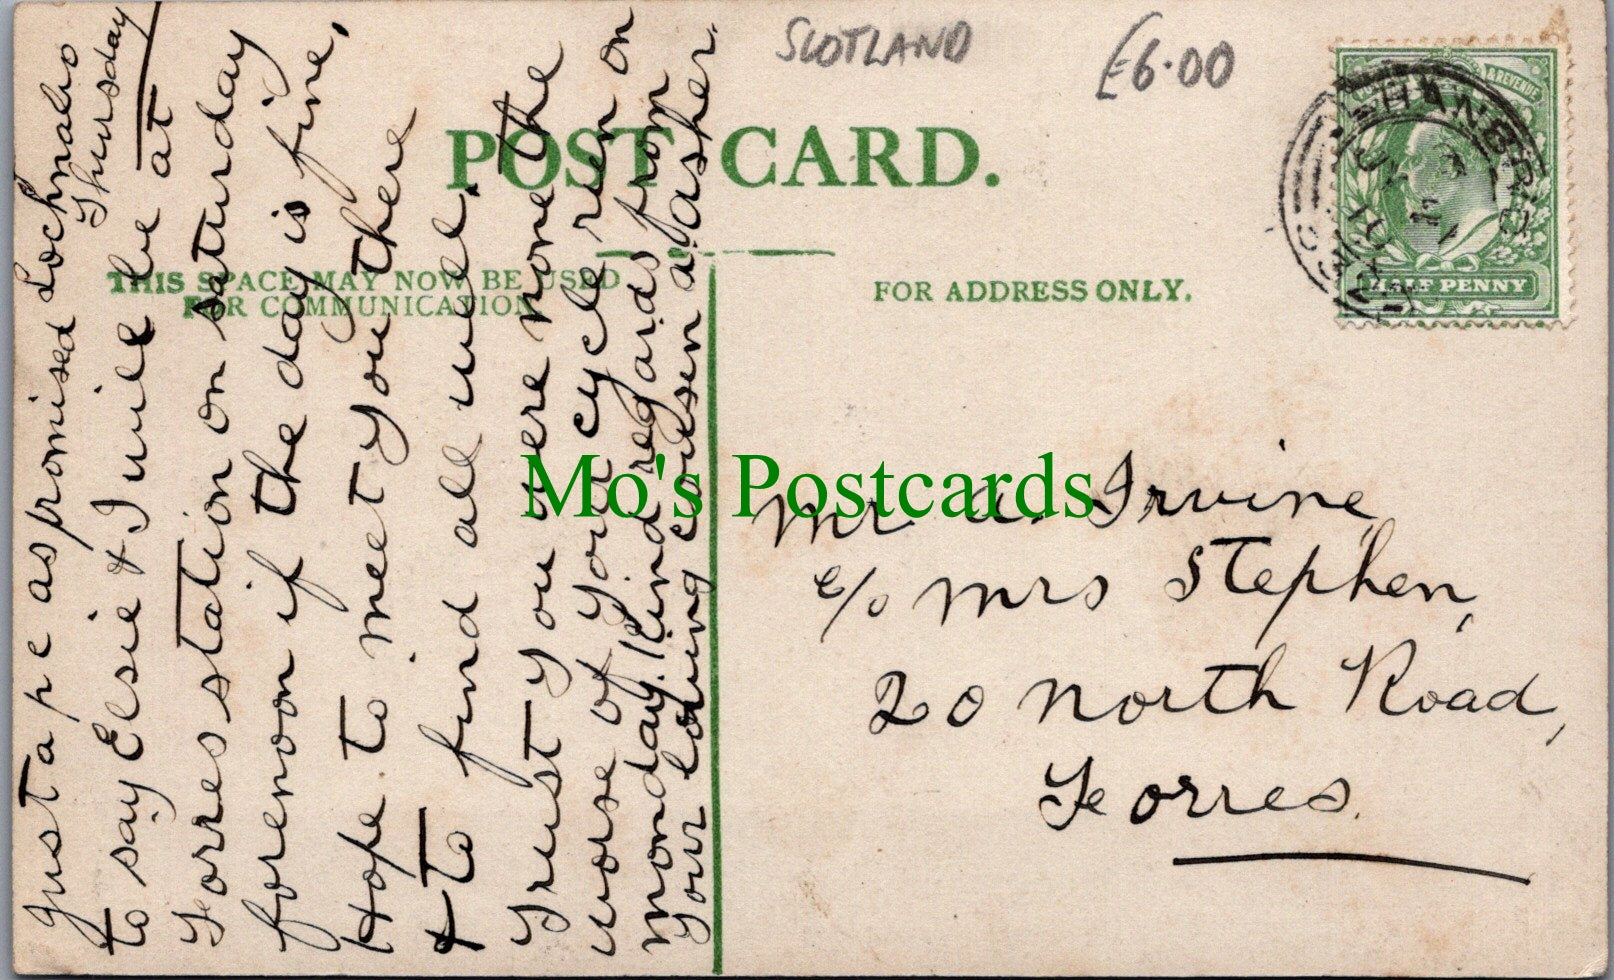 SCOTLAND
£6.00
POST CARD.
THIS SPACE MAY NOW BE USED
FOR COMMUNICATION
FOR ADDRESS ONLY.
& REVENUE
HALF PENNY
Lochnabo
Thursday
Just a p c as promised
to say Elsie & I will be at
Forres station on saturday
forenoon if the day is fine,
Hope to meet you there
& to find all well.
Trust you were none the
worse of your cycle run on
monday. Kind regards from
Your loving cousin
Mr A. Irvine,
c/o Mrs Stephen,
20 North Road,
Forres.
Mo's Postcards